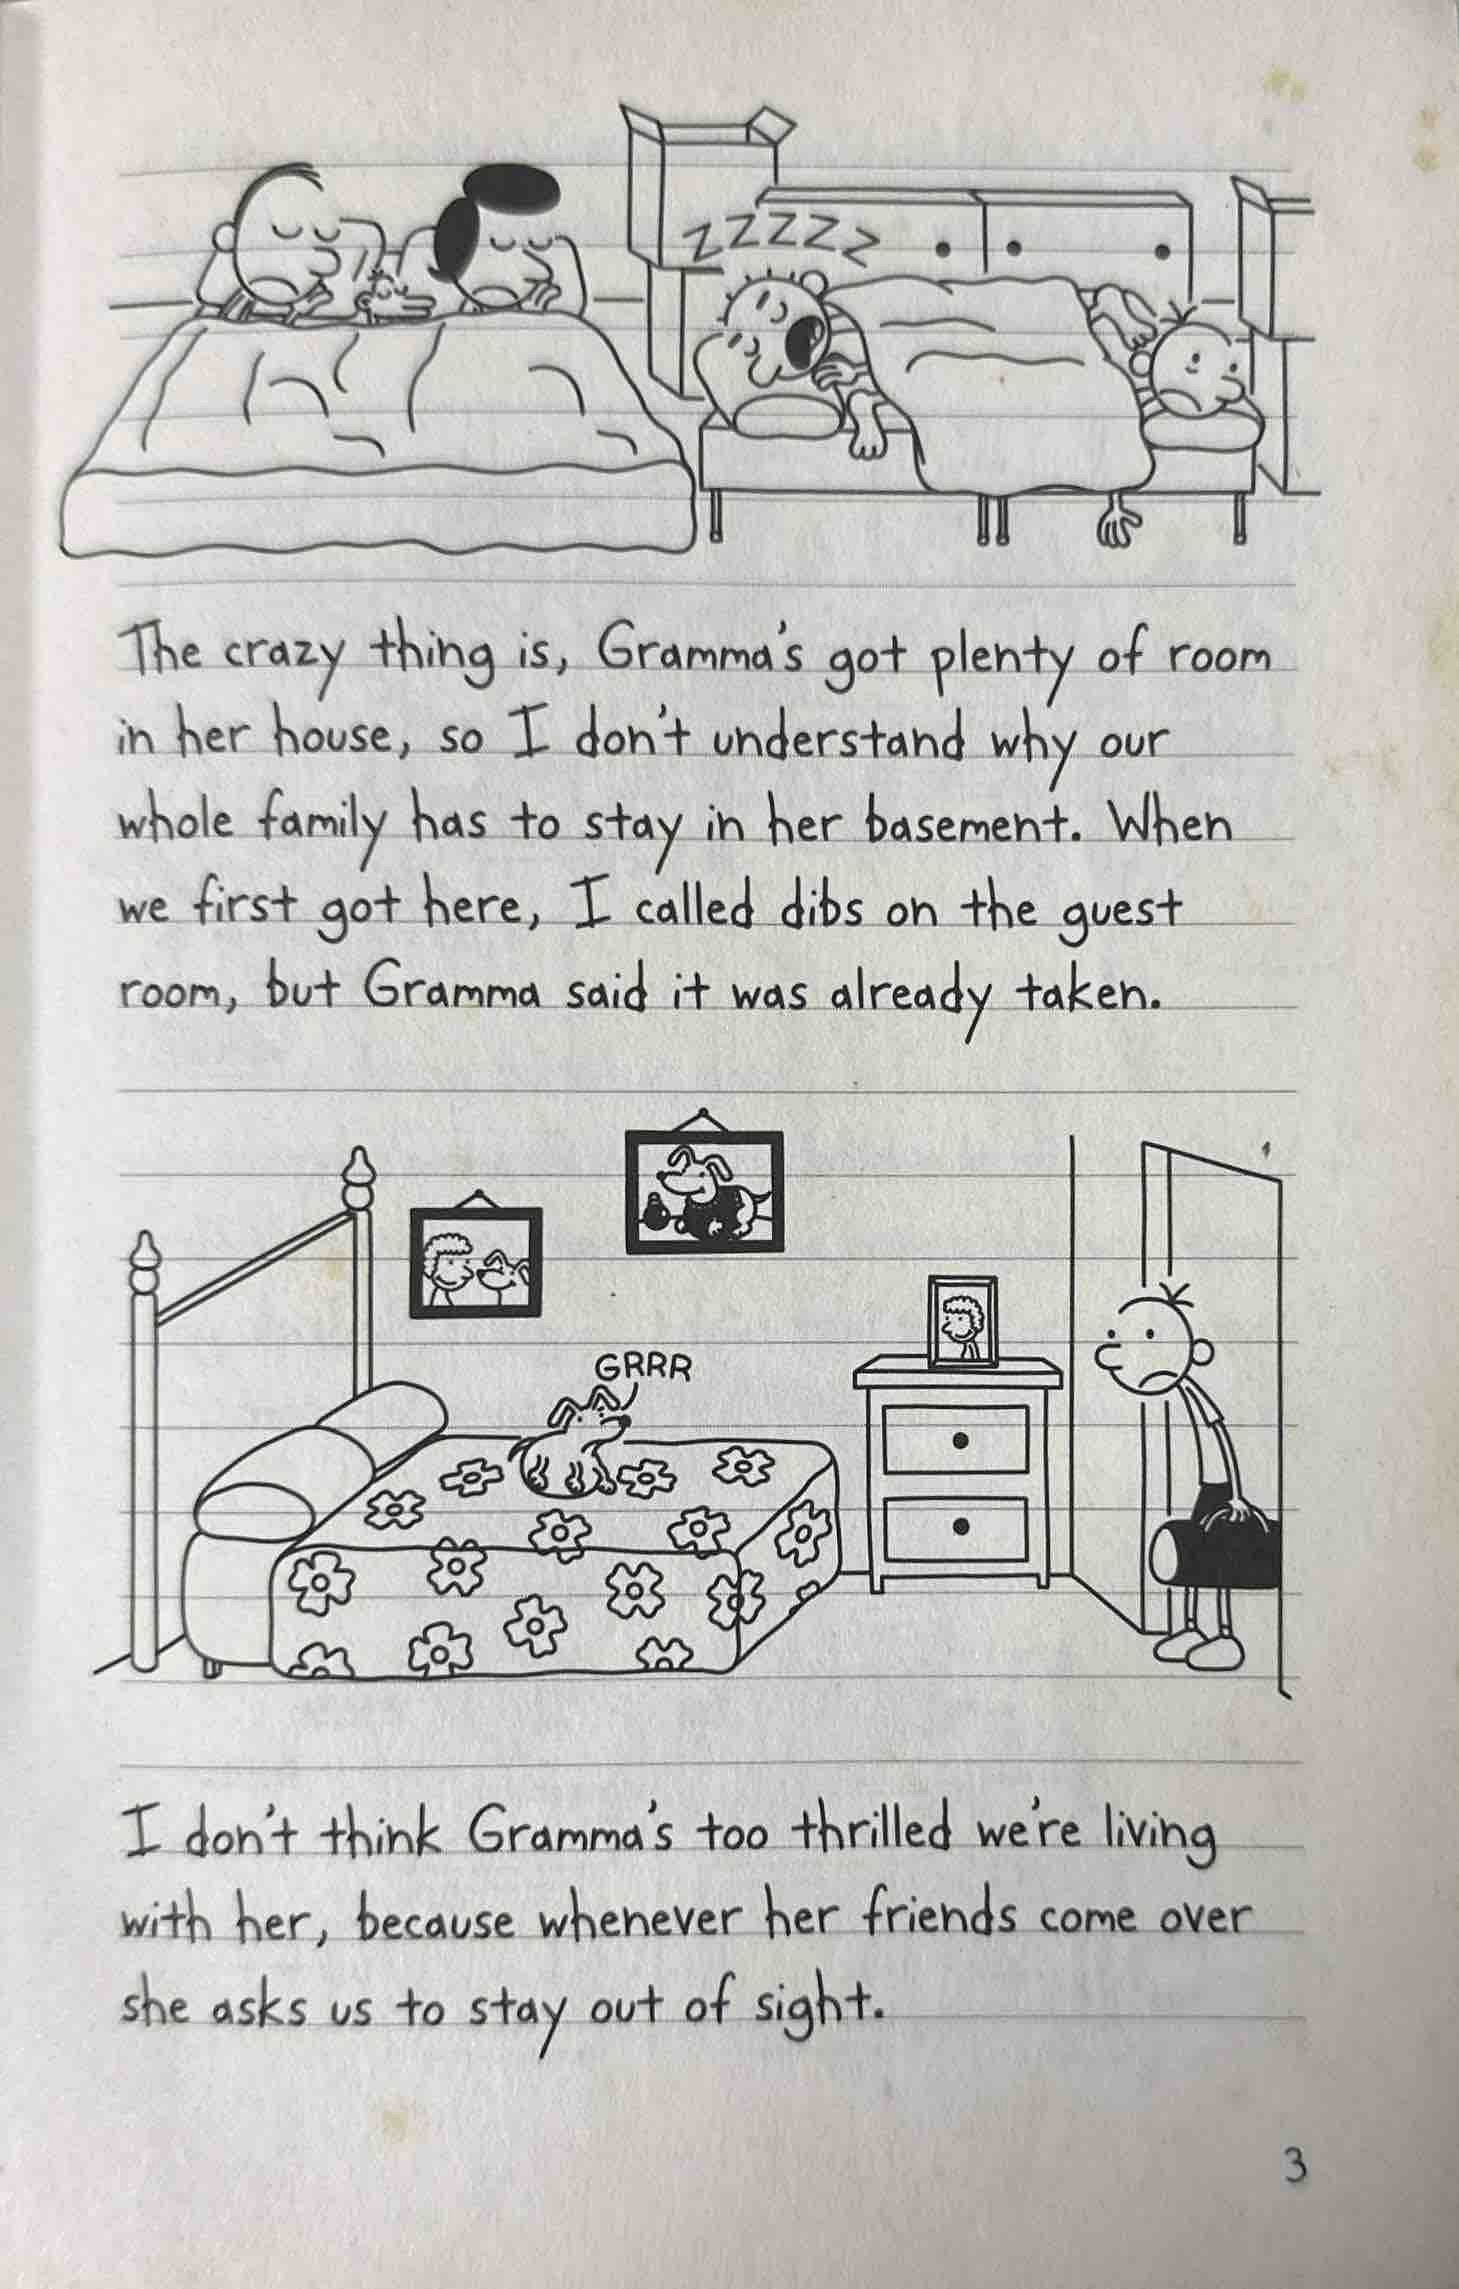 ZZZZZ
The crazy thing is, Gramma's got plenty of room
in her house, so I don't understand why our
whole family has to stay in her basement. When
we first got here, I called dibs on the guest
room, but Gramma said it was already taken.
GRRR
I don't think Gramma's too thrilled we're living
with her, because whenever her friends come over
she asks us to stay out of sight.
3